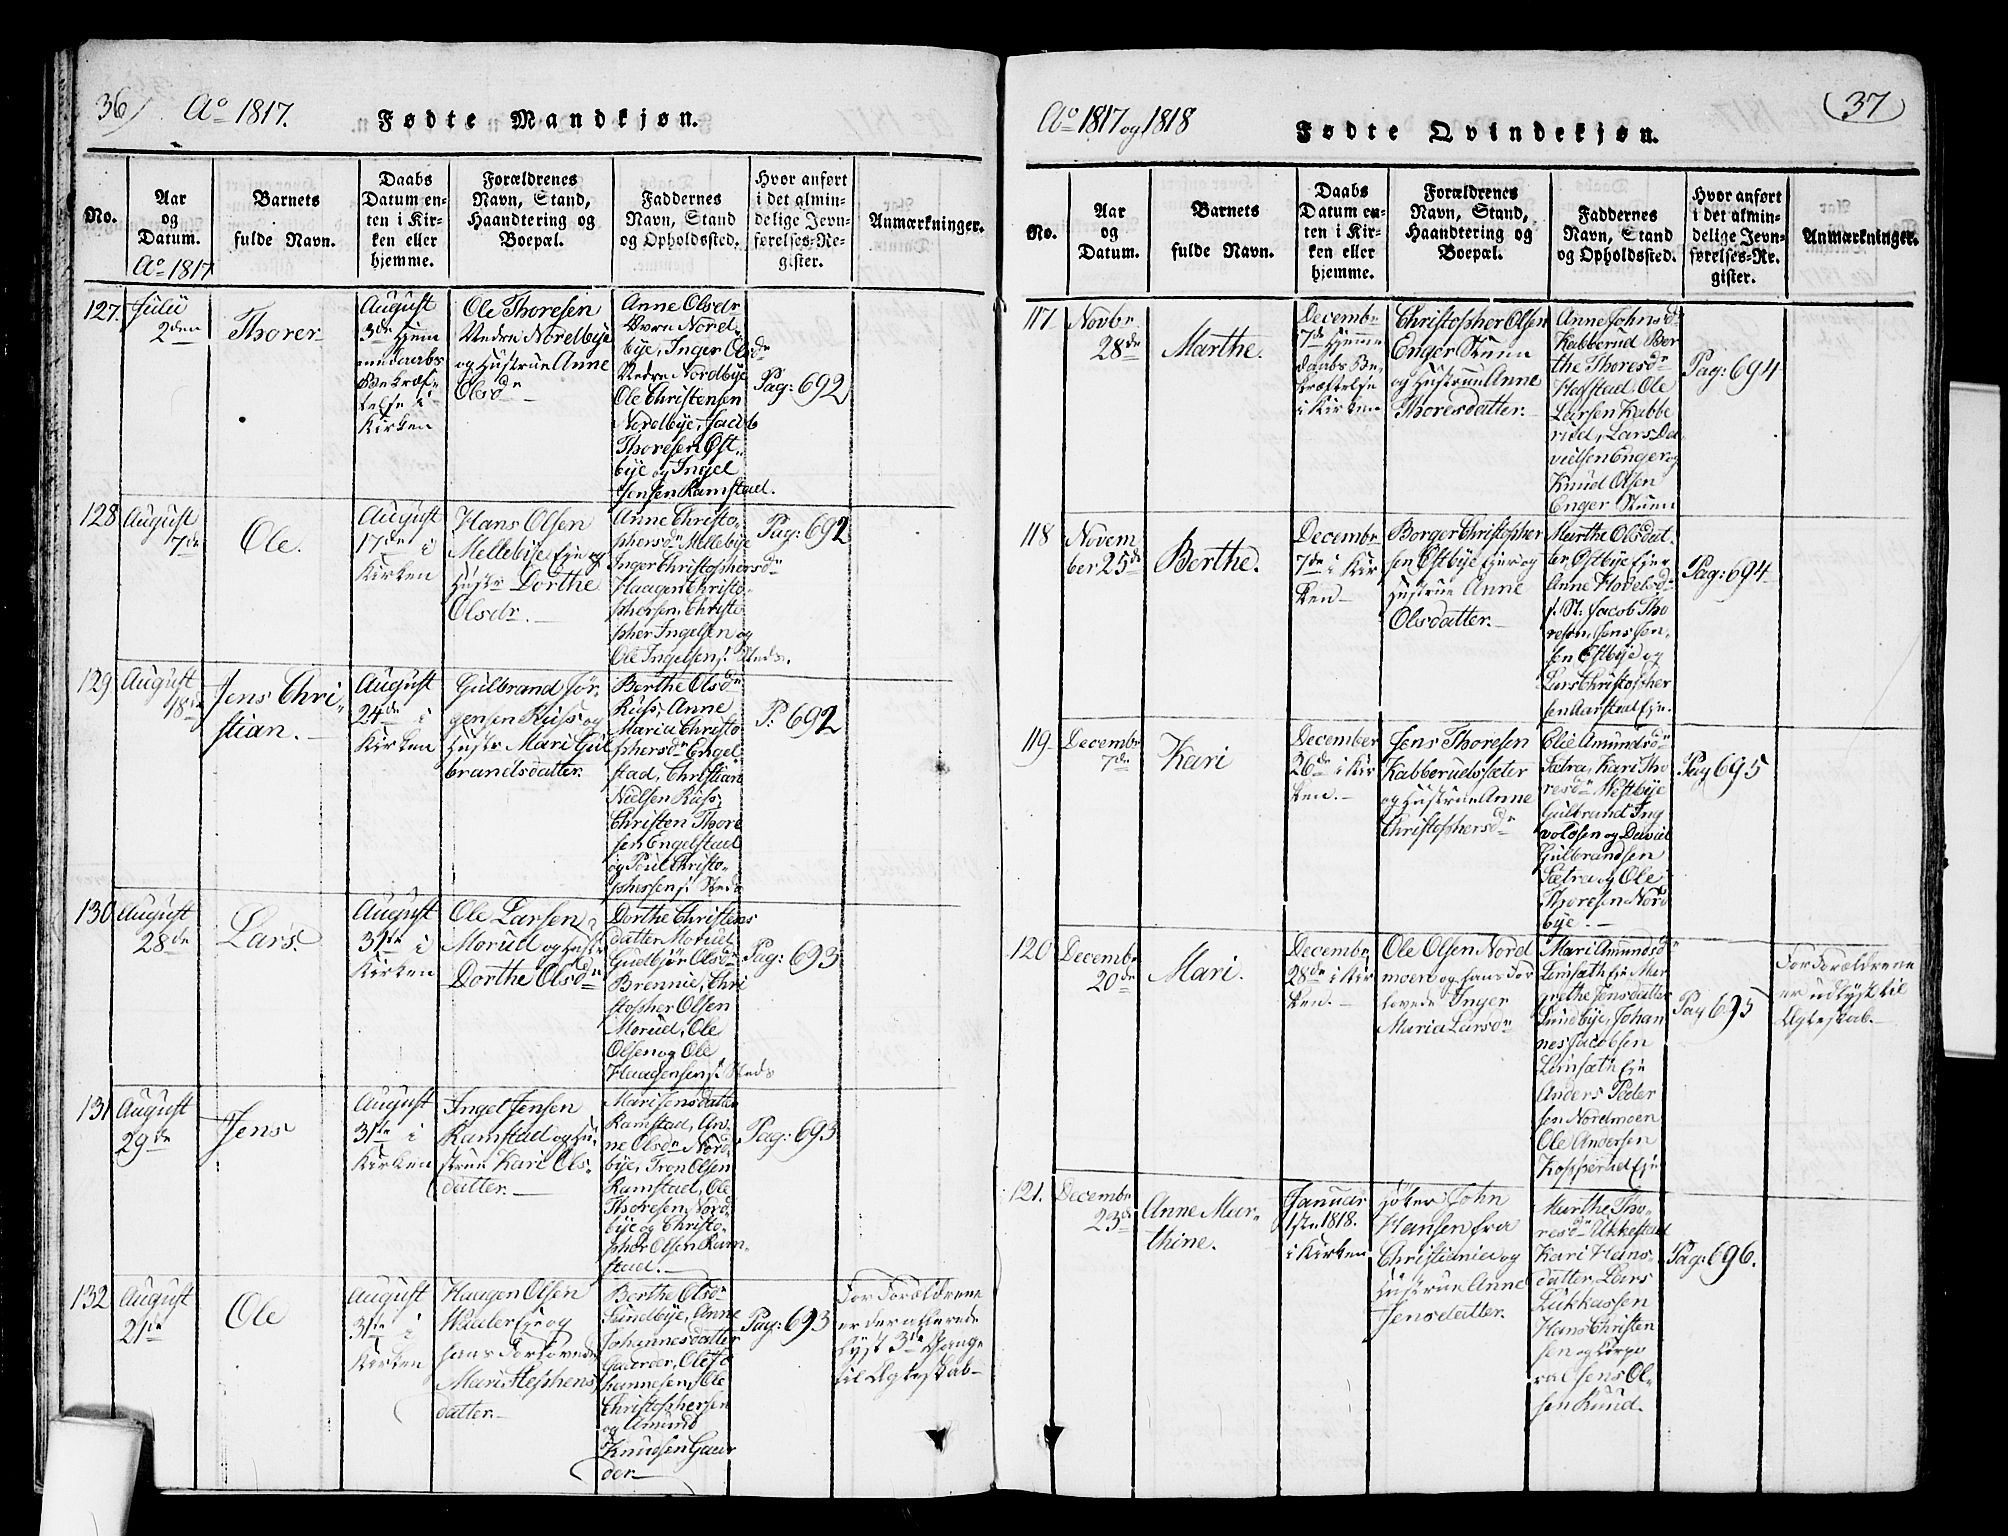 36)
Ao 1817.
Fødte Mandkjøn.
No.
Aar
og
Datum.
Barnets
fulde Navn.
Daabs
Datum en-
ten i Kir-
ken eller
hjemme.
Forældrenes
Navn, Stand,
Haandtering og
Boepæl.
Faddernes
Navn, Stand
og Opholdssted.
Hvor anført
i det almin-
delige Jevn-
førelses-Re-
gister.
Anmærkninger.
Ao 1817
127.
Julii
2den
Thorer
August
3de Hjem
medaabs
Bekræf-
telse i
Kirken
Ole Thoresen
Nedre Nordbye
og Hustrue Anne
Olsdr
Anne Olsdr
Øvre Nord-
bye, Inger Olsdr
Nedre Nordbye
Ole Christensen
Nordbye, Jacob
Thoresen Øst-
bye og Ingel
Jensen Ramstad.
Pag: 692
128
August
7de
Ole.
August
17de i
Kirken
Hans Olsen
Mellebye Eje og
Hustr Dorthe
Olsdr.
Anne Christo-
phersdr Mellebye
Inger Christophersdr
Haagen Christo-
phersen, Christo
pher Ingelsen og
Ole Ingelsen s. Steds.
Pag: 692
129
August
18de
Jens Chri-
stian.
August
24de i
Kirken
Gulbrand Jør-
gensen Russ og
Hustr Mari Gul
brandsdatter.
Berthe Olsdr
Russ, Anne
Maria Christo
phersdr Engel
stad, Christian
Nielsen Russ,
Christen Thore
sen Engelstad
og Poul Christo-
phersen s. Steds
P: 692
130
August
28de
Lars.
August
31te i
Kirken
Ole Larsen
Morud og Hustr
Dorthe Olsdr
Dorthe Christens
datter Morud
Gudbjør Olsdr
Brennie, Chri
stopher Olsen
Morud, Ole
Olsen og Ole
Haagensen s. Steds
Pag: 693
131
August
29de
Jens
August
31te i
Kirken
Ingel Jensen
Ramstad og Hu-
strue Kari Ols-
datter.
Mari Jensdatter
Ramstad, An-
ne Olsdr Nord-
bye, Tron Olsen
Ramstad, Ole
Thoresen Nord-
bye og Christo-
pher Olsen Ram-
stad.
Pag: 693
132
August
21de
Ole
August
31te i
Kirken
Haagen Olsen
Eje og
hans Forlovede
Mari Stephens
datter.
Berthe Olsdr
Sundbye, Anne
Johannesdatter
Gaarder, Ole Jo
hannesen, Ole
Christophersen
og Amund
Knudsen Gaar
der
Pag: 693
For Forældrene
er der allerede
lyst 3de Gange
til Ægteskab
Ao 1817 og 1818
Fødte Qvindekjøn.
(37)
No.
Aar
og
Datum.
Barnets
fulde Navn.
Daabs
Datum en-
ten i Kir-
ken eller
hjemme.
Forældrenes
Navn, Stand,
Haandtering og
Boepæl.
Faddernes
Navn, Stand
og Opholdssted.
Hvor anført
i det almin-
delige Jevn-
førelses-Re-
gister.
Anmærkninger.
117
Novbr
28de
Marthe.
Decembr
7de Hjemme
daabs Be-
kræftelse
i Kirken
Christopher Olsen
Enger
og Hustrue Anne
Thoresdatter.
Anne Johnsdr
Kabberud Ber
the Thoresdr
Hofstad Ole
Larsen Kabbe
rud, Lars Da
vidsen Enger og
Knud Olsen
Enger
Pag: 694
118
Novem
ber 25de
Berthe.
Decembr
7de i Kir
ken
Borger Christopher
sen Østbye Ejer og
Hustrue Anne
Olsdatter.
Marthe Olsdat
ter Østbye Ejer
Anne Hovelsdr
s. St. Jacob Tho
resen, Jens Jen-
sen Østbye og
Lars Christopher
sen Aarstad Eje.
Pag: 694
119
Decembr
7de
Kari
December
26de i Kir
ken.
Jens Thoresen
Kabberudsæter
og Hustrue Anne
Christophersdr
Olie Amundsdr
Sætra, Kari Tho
resdr Westbye
Gulbrand Ing
voldsen og David
Gulbrandsen
Sætra og Ole
Thoresen Nord
bye.
Pag 695
120
Decembr
20de
Mari.
Decembr
28de i Kir
ken.
Ole Olsen Nord
moen og hans For
lovede Inger
Maria Larsdr
Mari Amundsd
Lomsæth Eje Mar
grethe Jensdatter
Sundbye, Johan
nes Jacobsen
Lomsæth Eje
Anders Peder
sen Nordmoen
Ole Andersen
Kopperud Eje
Pag 695
For Forældrene
er udlyst til
Ægteskab.
121.
Decembr
23de
Anne Mar-
thine.
Januar
1ste 1818.
i Kirken
Høker John
Hansen fra
Christiania og
Hustrue Anne
Jensdatter.
Marthe Tho-
resdr Ukkestad
Kari Hans-
datter, Lars
Lukkassen
Hans Christen
sen og Corpo
ral Jens Ol-
sen Rund.
Pag: 696.